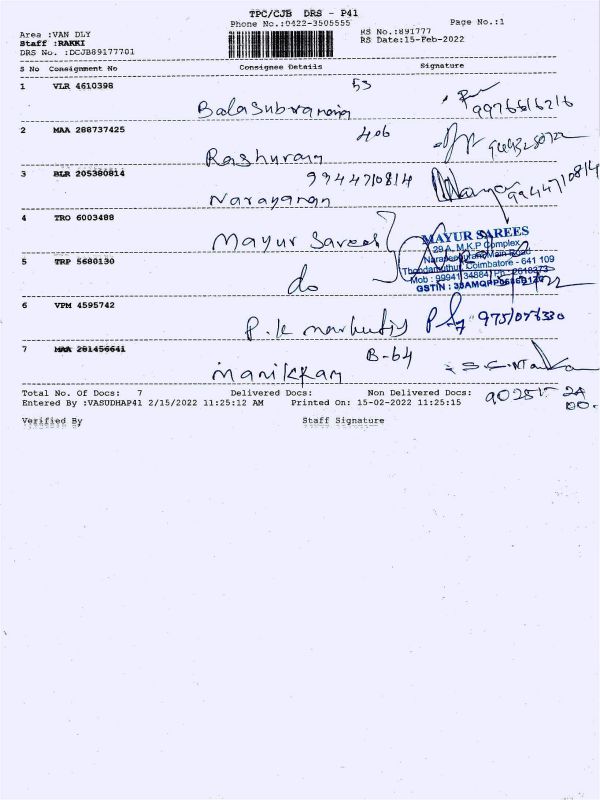 TPC/CJB DRS - P41
Phone No.:0422-3505555 Page No.:1
Area :VAN DLY RS No.:891777
Staff :RAKKI RS Date:15-Feb-2022
DRS No. :DCJB89177701
S No Consignment No Consignee Details Signature
1 VLR 4610398 53
Balasubramani 9976516216
2 MAA 288737425 406
Raghuram
3 BLR 205380814 9944710814 9944710814
Narayanan
4 TRO 6003488
Mayur Sarees
MAYUR SAREES
29 A, M.K.P Complex
Main Road
5 TRP 5680130 Coimbatore - 641 109
do Mob : 99941 34884
GSTIN :
6 VPM 4595742
P.K 9751076330
7 MAA 281456641 B-64
Manikkam
Total No. Of Docs: 7 Delivered Docs: Non Delivered Docs:
Entered By :VASUDHAP41 2/15/2022 11:25:12 AM Printed On: 15-02-2022 11:25:15
Verified By Staff Signature